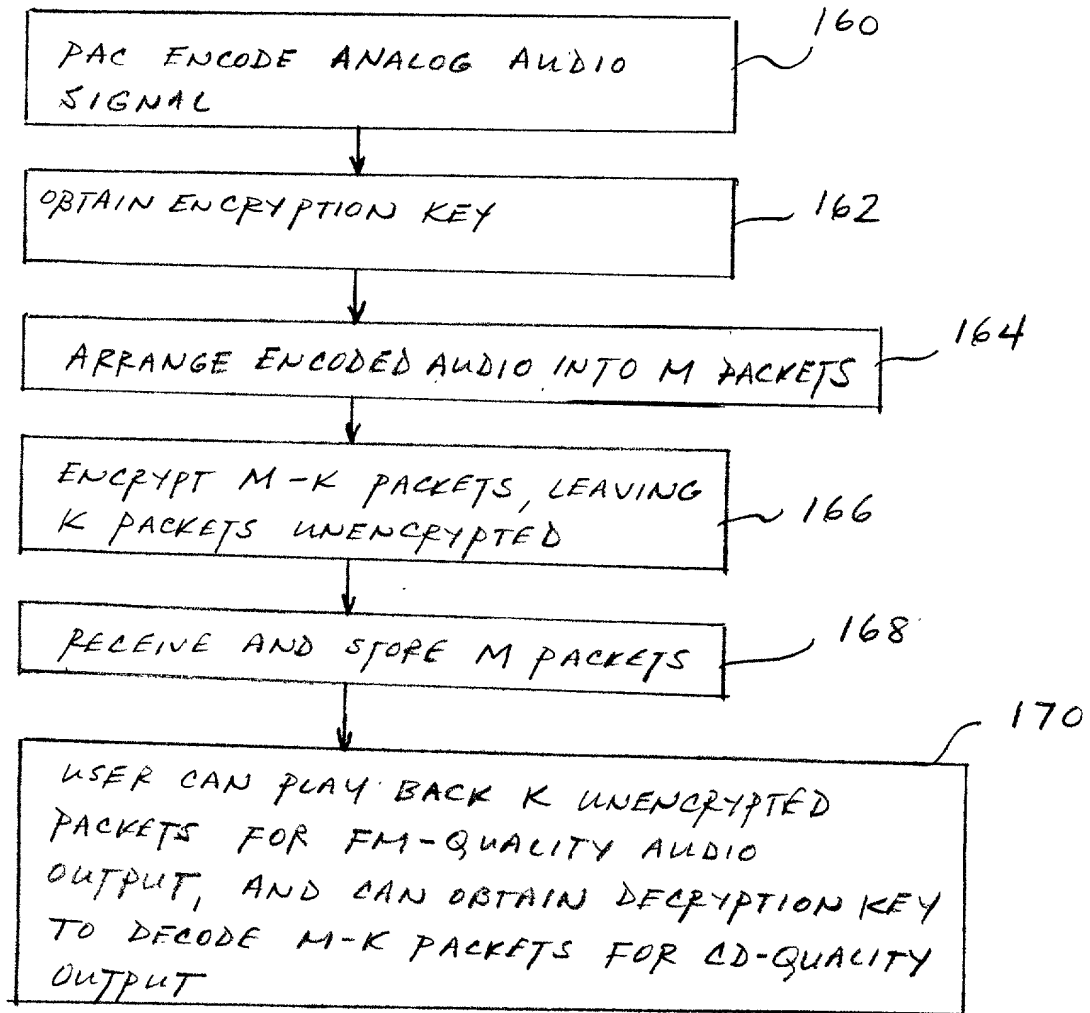 PAC ENCODE ANALOG AUDIO
SIGNAL
160
OBTAIN ENCRYPTION KEY
162
ARRANGE ENCODED AUDIO INTO M PACKETS
164
ENCRYPT M-K PACKETS, LEAVING
K PACKETS UNENCRYPTED
166
RECEIVE AND STORE M PACKETS
168
170
USER CAN PLAY BACK K UNENCRYPTED
PACKETS FOR FM-QUALITY AUDIO
OUTPUT, AND CAN OBTAIN DECRYPTION KEY
TO DECODE M-K PACKETS FOR CD-QUALITY
OUTPUT